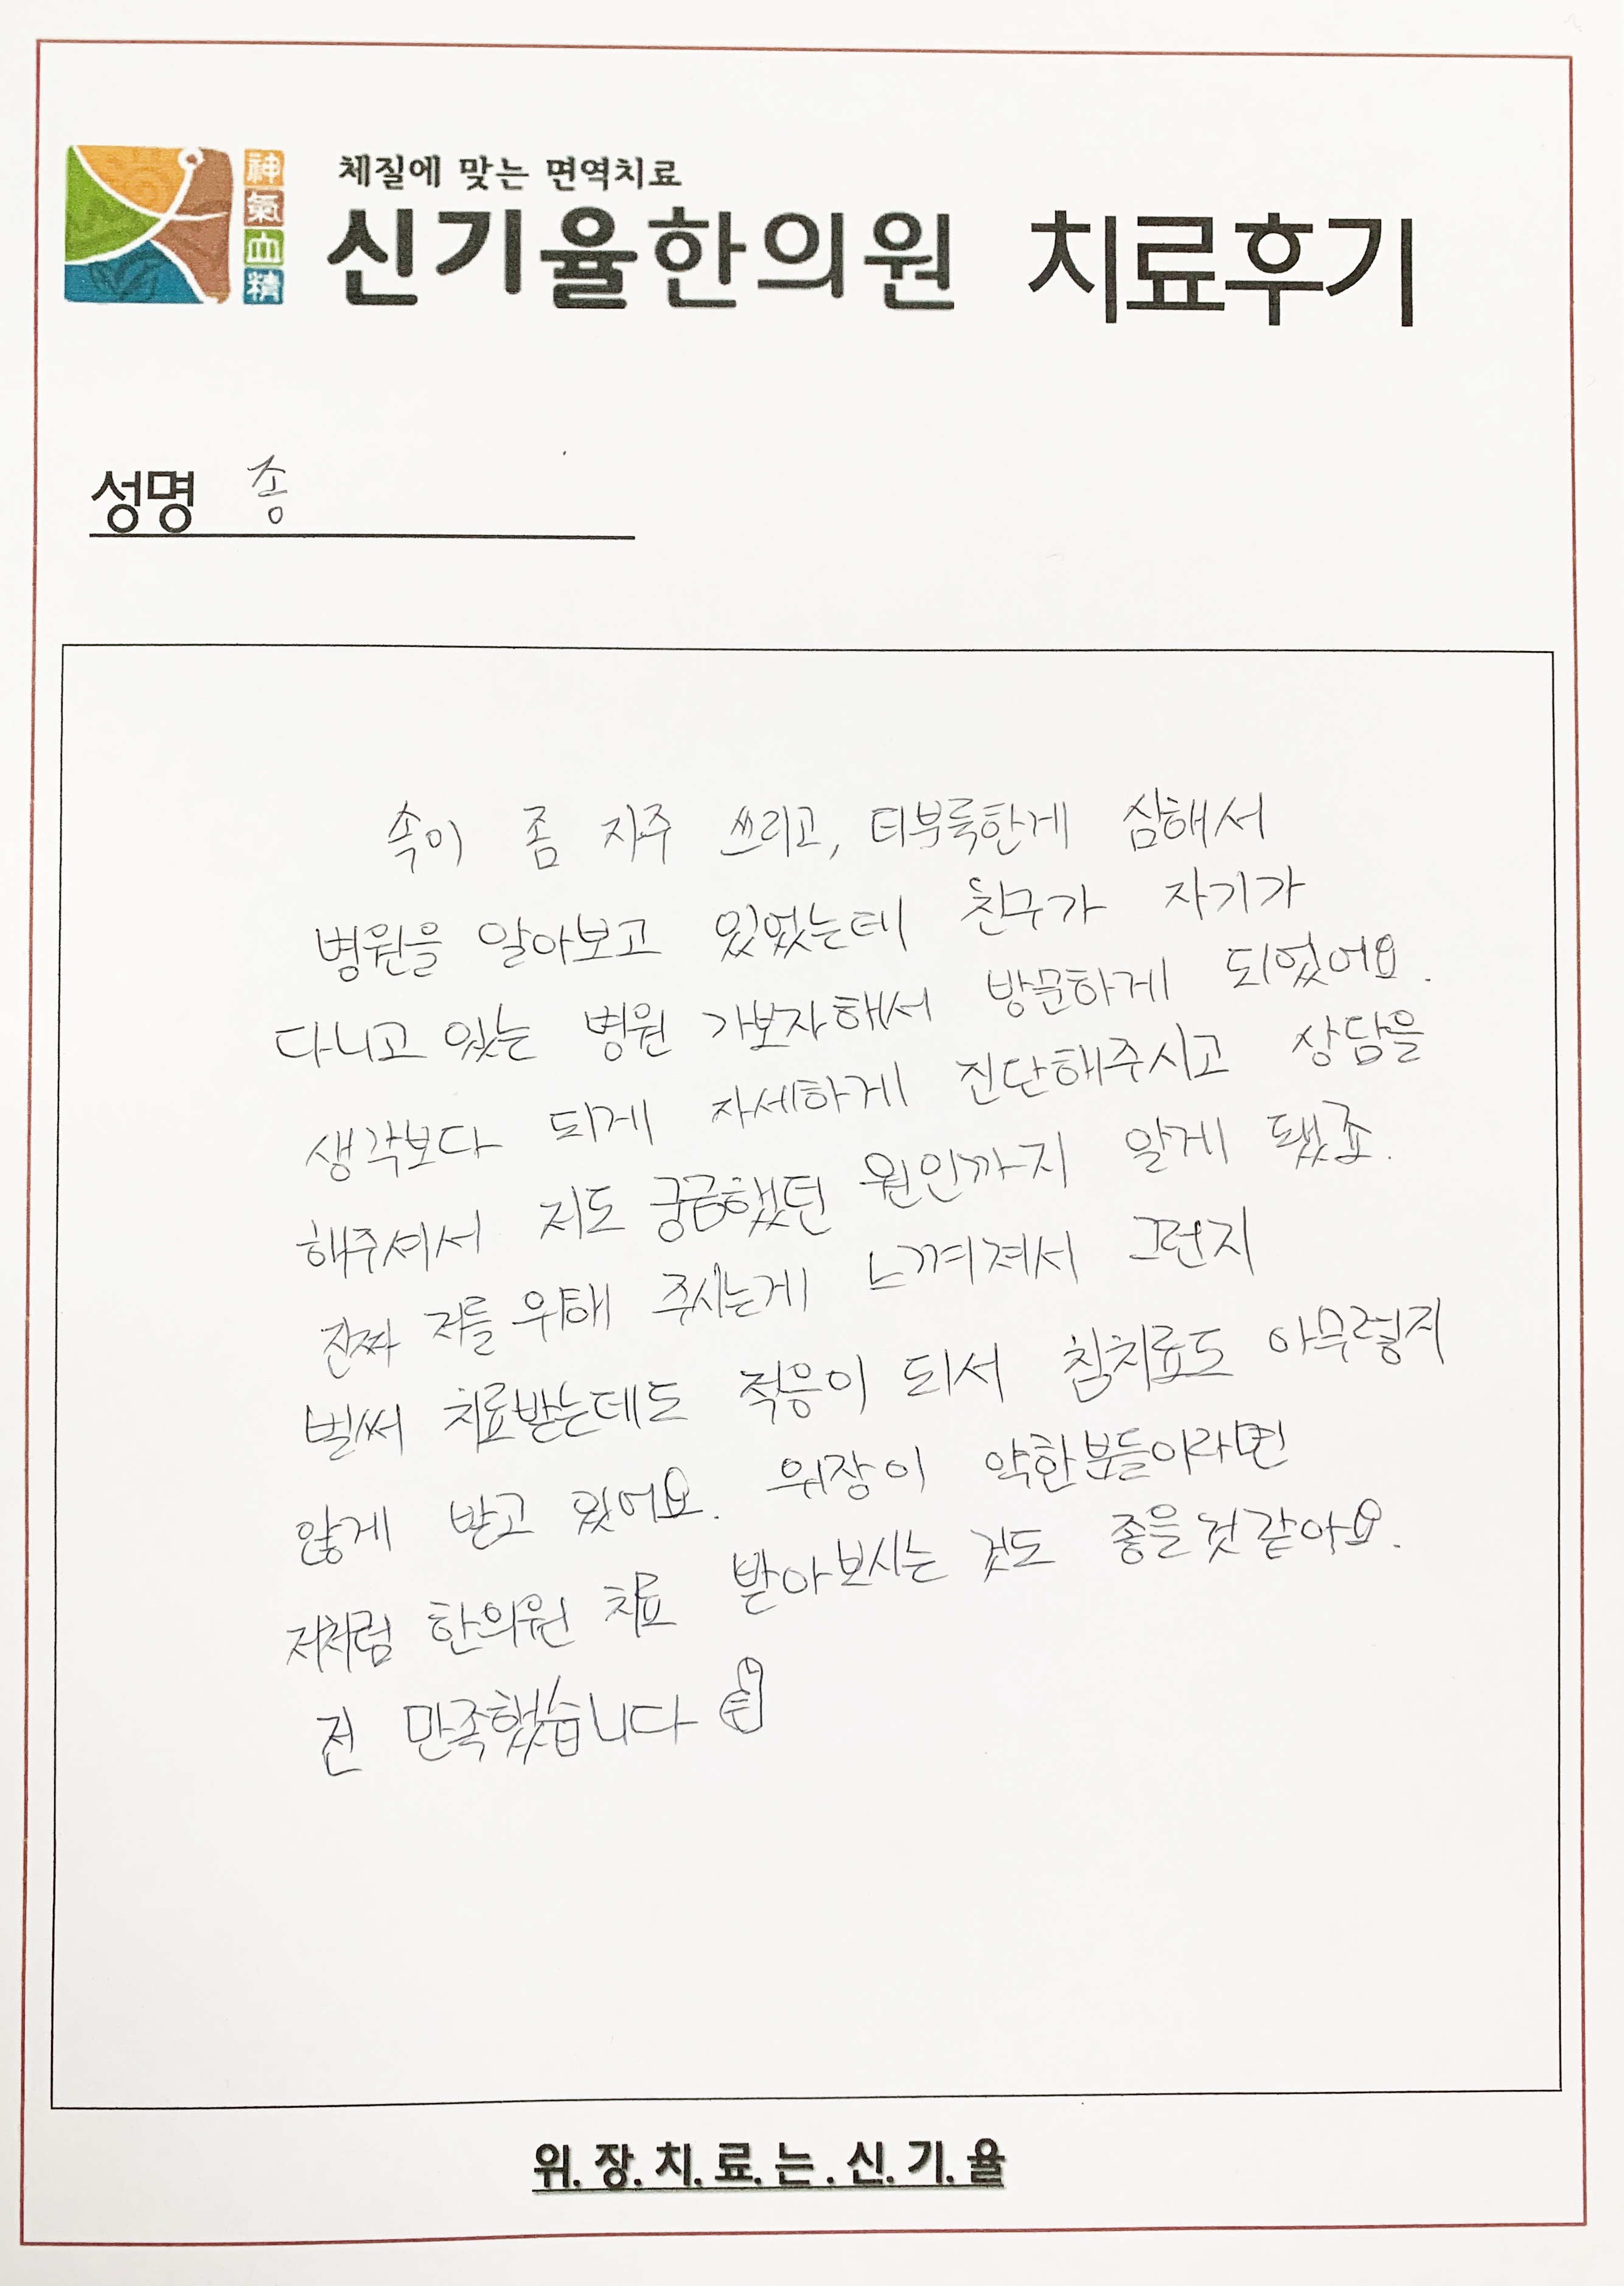 체질에 맞는 면역치료
神氣血精
신기율한의원 치료후기
성명 종
속이 좀 자주 쓰리고, 더부룩한게 심해서
병원을 알아보고 있었는데 친구가 자기가
다니고 있는 병원 가보자해서 방문하게 되었어요.
생각보다 되게 자세하게 진단해주시고 상담을
해주셔서 저도 궁금했던 원인까지 알게 됐죠.
진짜 저를 위해 주시는게 느껴져서 그런지
벌써 치료받는데도 적응이 되서 침치료도 아무렇지
않게 받고 왔어요. 위장이 약한분들이라면
저처럼 한의원 치료 받아보시는 것도 좋을것같아요.
전 만족했습니다
위.장.치.료.는.신.기.율